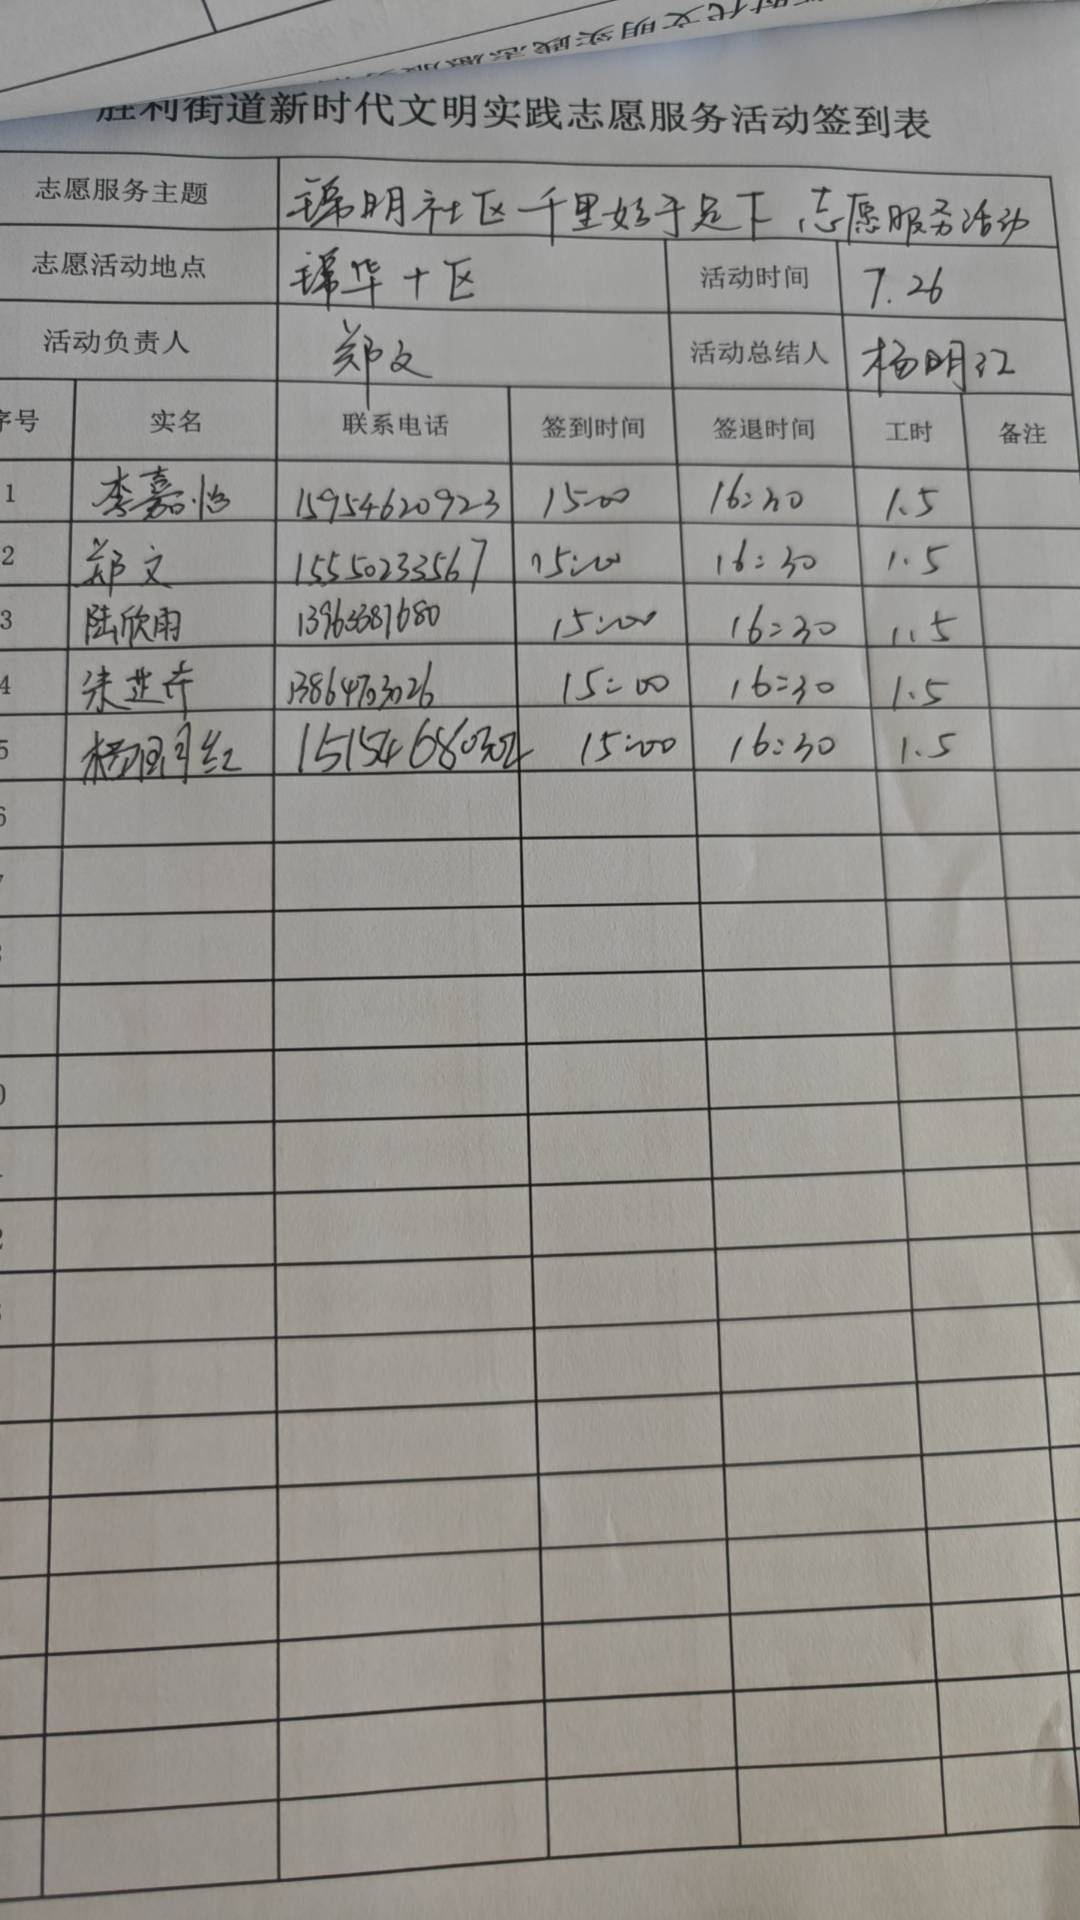 时代文明实践志愿服
胜利街道新时代文明实践志愿服务活动签到表
志愿服务主题 锦明社区千里始于足下 志愿服务活动
志愿活动地点 锦华十区 活动时间 7.26
活动负责人 郑文 活动总结人 杨明红
序号 实名 联系电话 签到时间 签退时间 工时 备注
1 李嘉怡 15954620923 15:00 16:30 1.5
2 郑文 15550233567 15:00 16:30 1.5
3 陆欣雨 13963387680 15:00 16:30 1.5
4 13864703026 15:00 16:30 1.5
5 杨明红 15154680302 15:00 16:30 1.5
6
7
8
0
2